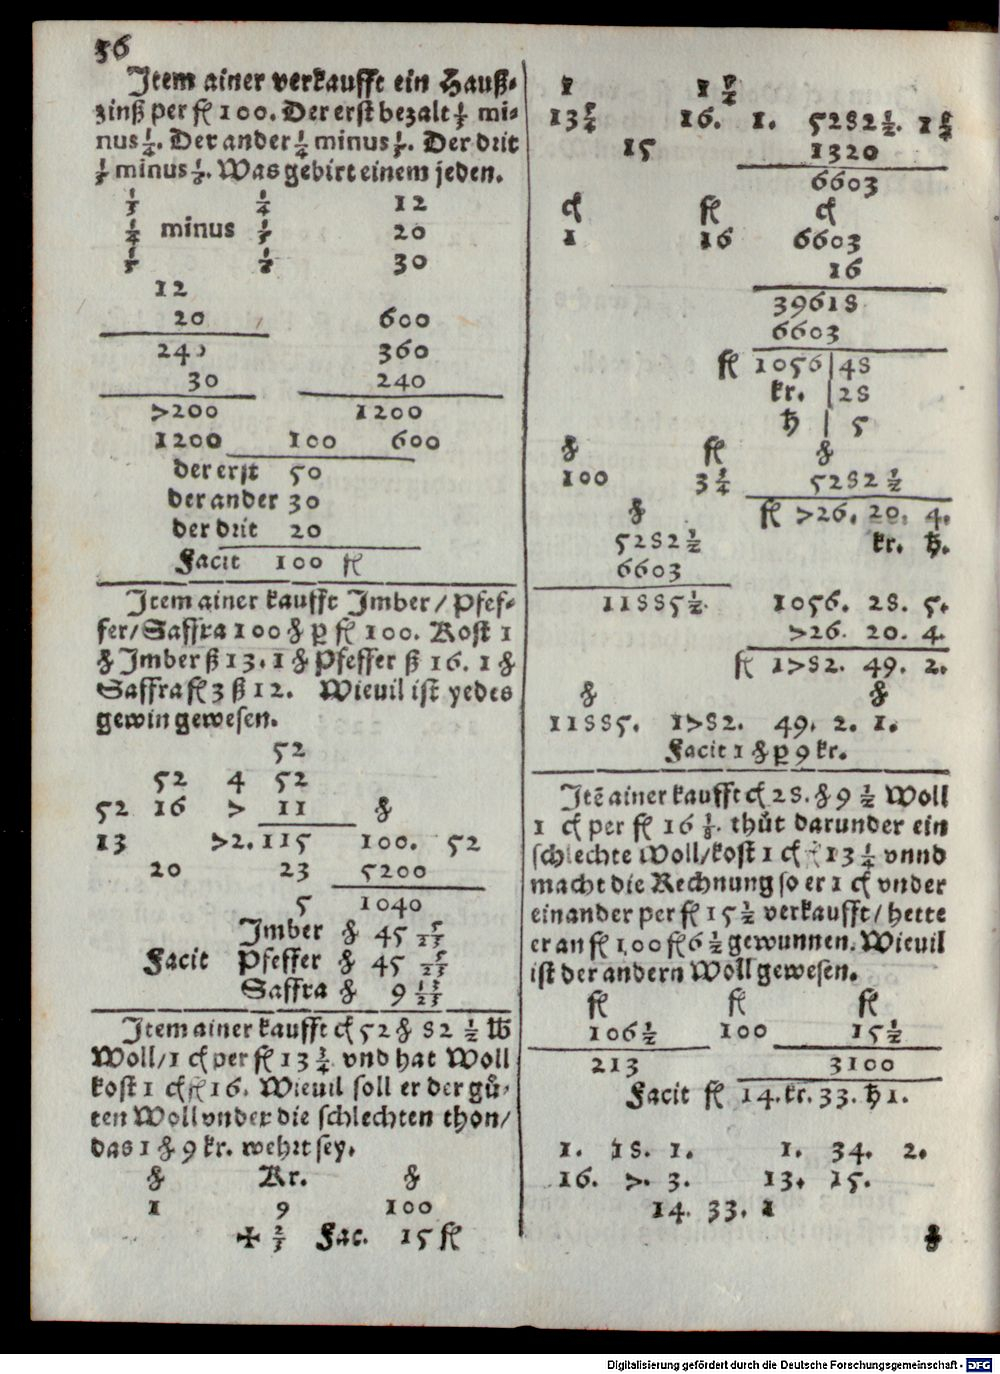 56
Item ainer verkaufft ein Hauß⸗
zinß per fl 100. Der erst bezalt ⅓ mi⸗
nus ¼. Der ander ¼ minus ⅕. Der drit
⅕ minus ⅙. Was gebirt einem jeden.
⅓ ¼ 12
¼ minus ⅕ 20
⅕ ⅙ 30
12
20 600
240 360
30 240
7200 1200
1200 100 600
der erst 50
der ander 30
der drit 20
Facit 100 fl
Item ainer kaufft Imber/Pfef⸗
fer/Saffra 100 ℔ p fl 100. Kost 1
℔ Imber ß 13. 1 ℔ Pfeffer ß 16. 1 ℔
Saffra fl 3 ß 12. Wieuil ist yedes
gewin gewesen.
52
52 4 52
52 16 7 11 ℔
13 72. 115 100. 52
20 23 5200
5 1040
Imber ℔ 45 5/23
Facit Pfeffer ℔ 45 5/23
Saffra ℔ 9 13/23
Item ainer kaufft ₵ 52 ℔ 82 ½ ℔
Woll/1 ₵ per fl 13 ¾ vnd hat Woll
kost 1 ₵ fl 16. Wieuil soll er der gů⸗
ten Woll vnder die schlechten thon/
das 1 ℔ 9 kr. wehrt sey.
℔ Kr. ℔
1 9 100
✠ ⅔ Fac. 15 fl
1 1 ¼
13 ¾ 16. 1. 5282 ½. 1 ¼
15 1320
6603
₵ fl ₵
1 16 6603
16
39618
6603
fl 1056|48
kr. |28
ħ | 5
℔ fl ℔
100 3 ¾ 5282 ½
℔ fl 726. 20. 4.
5282 ½ kr. ħ.
6603
11885 ½. 1056. 28. 5.
726. 20. 4.
fl 1782. 49. 2.
℔ ℔
11885. 1782. 49. 2. 1.
Facit 1 ℔ p 9 kr.
Itẽ ainer kaufft ₵ 28. ℔ 9 ½ Woll
1 ₵ per fl 16 ⅛. thůt darunder ein
schlechte Woll/kost 1 ₵ fl 13 ¼ vnnd
macht die Rechnung so er 1 ₵ vnder
einander per fl 15 ½ verkaufft/hette
er an fl 100 fl 6 ½ gewunnen. Wieuil
ist der andern Woll gewesen.
fl fl fl
106 ½ 100 15 ½
213 3100
Facit fl 14. kr. 33. ħ 1.
1. 18. 1. 1. 34. 2.
16. 7. 3. 13. 15.
14. 33. 1
℔
Digitalisierung gefördert durch die Deutsche Forschungsgemeinschaft - DFG